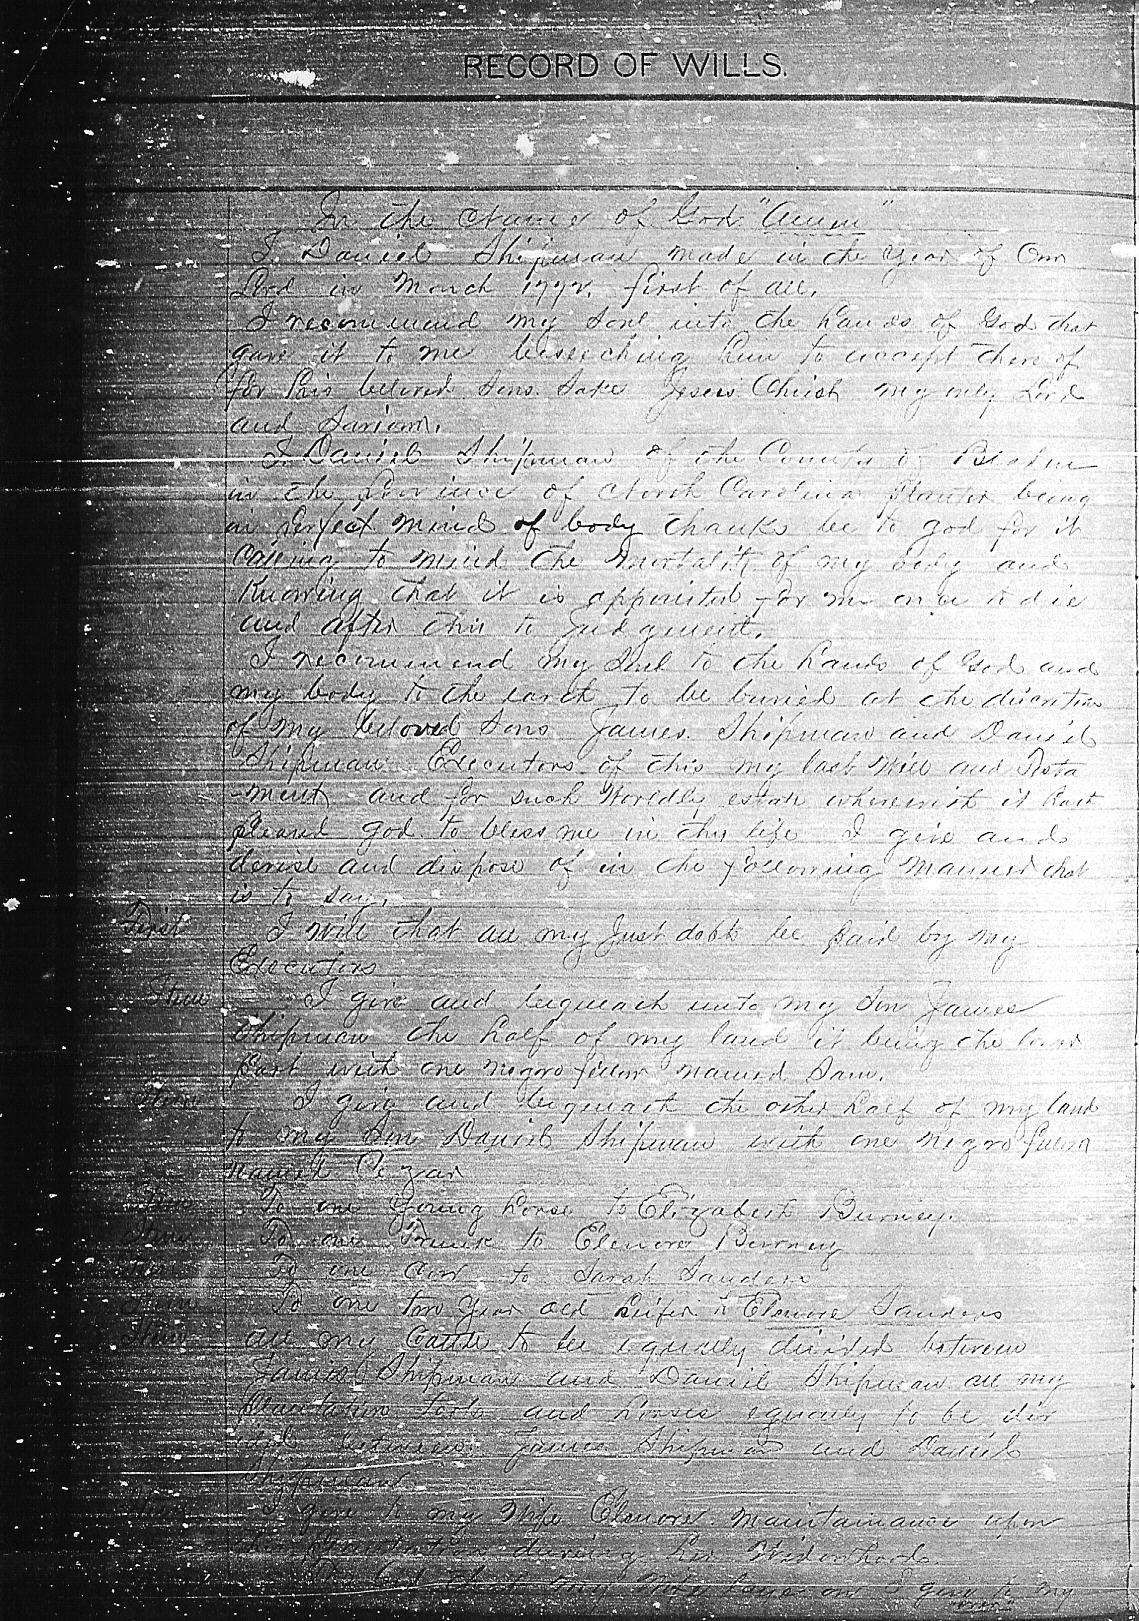 RECORD OF WILLS.
In the Name of God "Amen"
I Daniel Shipman made in the year of Our
Lord in March 1772. first of all.
I recommend my Soul into the hands of God that
gave it to me beseeching him to accept there of
for his beloved Sons Sake Jesus Christ my only Lord
and
I Daniel Shipman of the County of Bladen
in the Province of North Carolina Planter being
in perfect mind of body thanks be to god for it
calling to mind the mortality of my body and
Knowing that it is appointed for me once to die
and after this to Judgment.
I recommend my Soul to the hands of God and
my body to the earth to be buried at the discretion
of my beloved Sons James Shipman and Daniel
Shipman Executors of this my last Will and Testa
-ment and for such Worldly estate wherewith it hath
pleased god to bless me in this life I give and
devise and dispose of in the following manner that
is to say.
First I will that all my Just debts be paid by my
Executors
Item I give and bequeath unto my Son James
Shipman the half of my land it being the lower
part with one negro fellow named Sam.
Item I give and bequeath the other half of my land
to my Son Daniel Shipman with one negro fellow
named Cezar
Item To one young horse to Elizabeth Burney.
Item To one Trunk to Elenore Burney
Item To one Cow to Sarah Sanders
Item To one two year old heifer to Elenore Sanders
Item all my Cattle to be equally divided between
James Shipman and Daniel Shipman all my
Plantation tools and horses equally to be div
ided between James Shipman and Daniel
Shipman
Item I give to my Wife Elenore maintainance upon
plantation during her Widowhood.
my I give to my